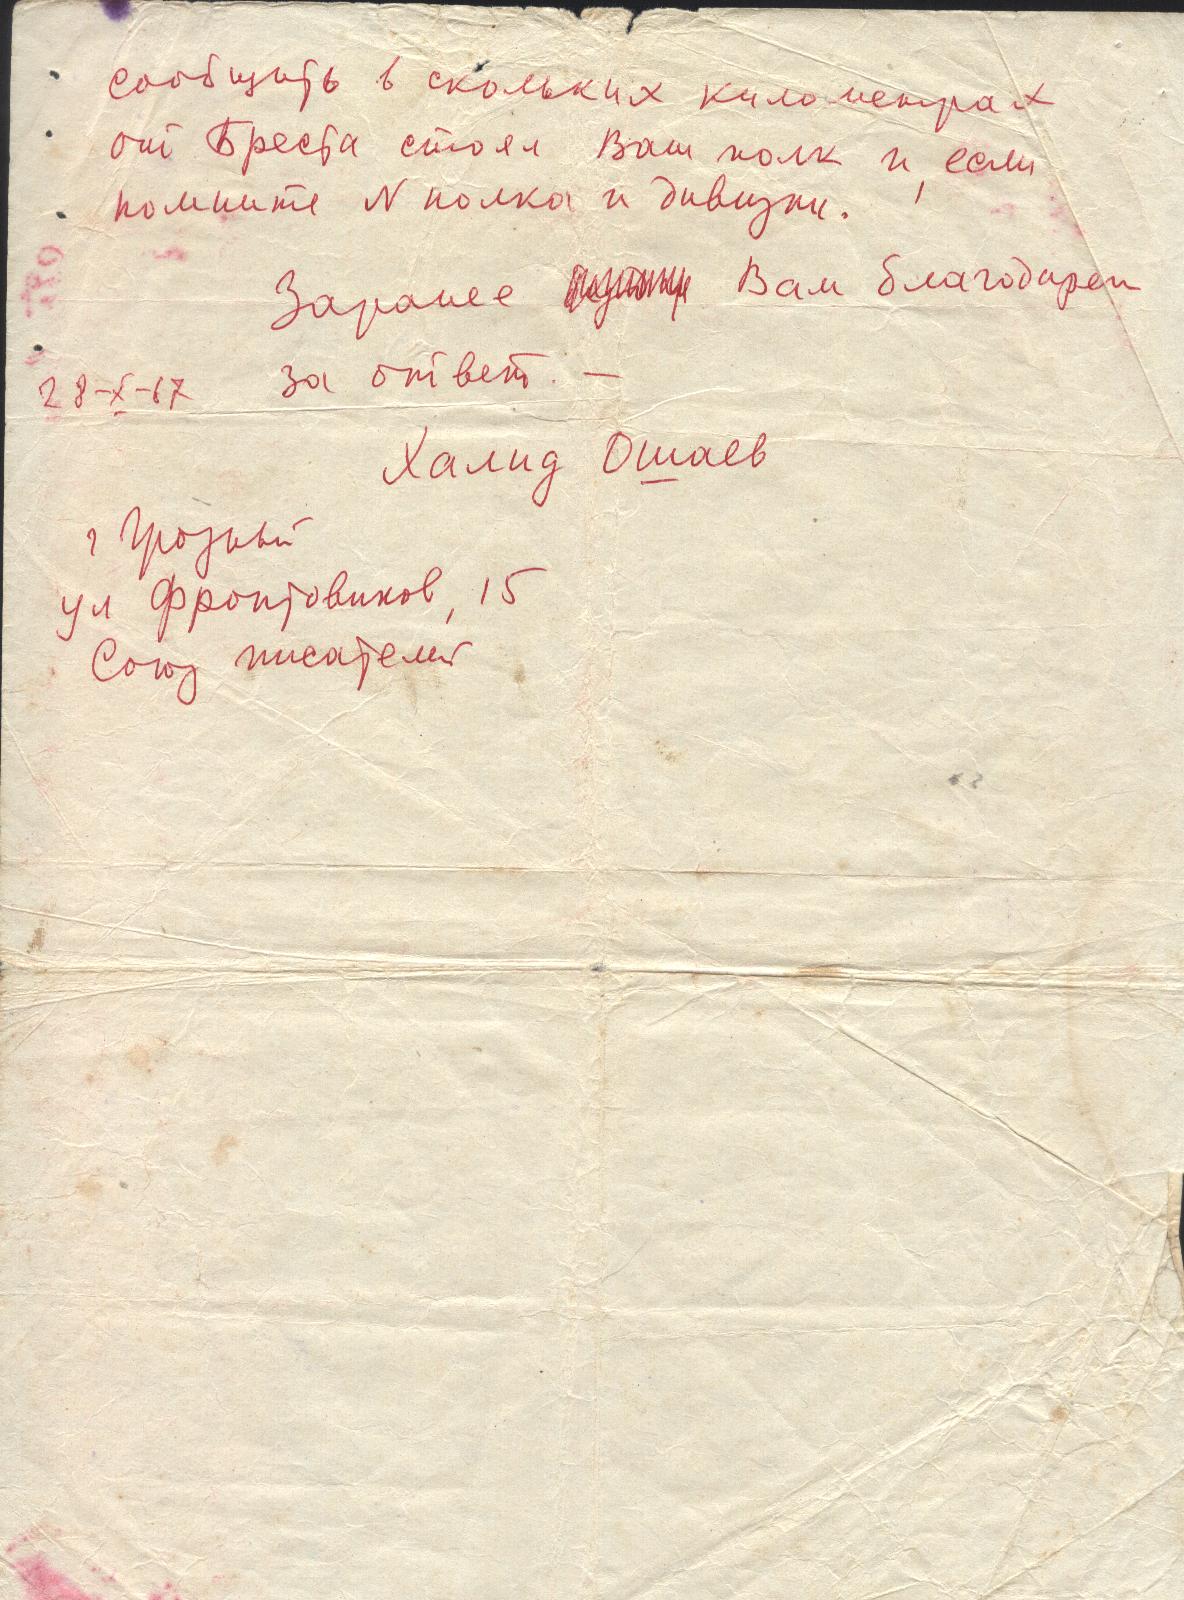 сообщить в скольких километрах
от Бреста стоял Ваш полк и, если
помните N полка и дивизии.
Заранее Вам благодарен
за ответ. —
28-X-67
Халид Ошаев
г Грозный
ул Фронтовиков, 15
Союз писателей